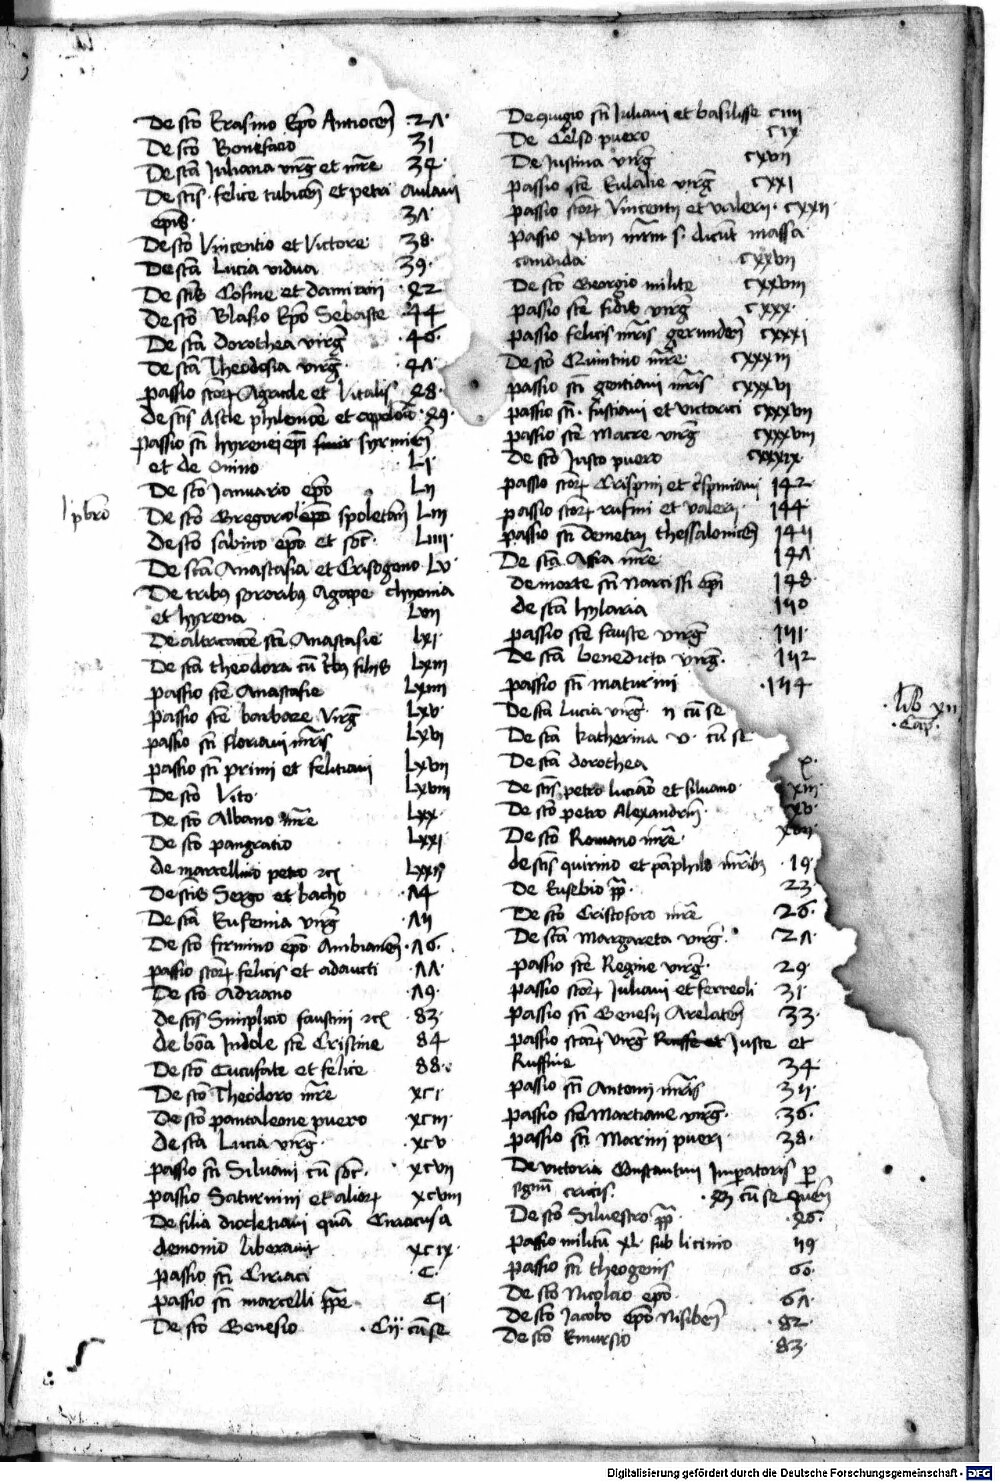 De sc̄o Erasmo Ep̄o Antiocen̄ ·2Λ·
De sc̄o Bonefacio 31
De sc̄a Juliana virḡ et mr̄e 34·
De sc̄is· felice tubicen̄ et petri Aulavii
ep̄is· 3Λ·
De sc̄o Vincentio et Victore 38·
De sc̄a Lucia vidua 39·
De sc̄is Cosme et damiani ·42
De sc̄o Blasio Ep̄o Sebaste 44
De sc̄a dorothea virḡ ·46·
De sc̄a Theodosia virḡ· ·4Λ·
passio sc̄oꝝ Agricole et Vitalis 48·
de sc̄is Ascle philemōe et ·49·
passio sc̄i hyrenei ep̄i syrmien̄
et de Li
De sc̄o Januario ep̄o Lii
lpb̄ro
De sc̄o Gregorio ep̄o spoletan̄ Liii
De sc̄o sabino ep̄o et soc̄· Liiii·
De sc̄a Anastasia et Crisogono Lv·
De tribus sororibus Agape chyonia
et hyrena Lvii
De altercacōe sc̄e Anastasie Lxi·
De sc̄a theodora cū tb̄ filiis Lxiii
passio sc̄e Anastasie Lxiiii
passio sc̄e barbare Virḡ Lxv·
passio sc̄i floriani mr̄is Lxvi
passio sc̄i primi et feliciani Lxvii
De sc̄o Vito· Lxviii
De sc̄o Albano mr̄e Lxx·
De sc̄o pangratio Lxxi
de marcellino petro ⁊c̄ Lxxii
De sc̄is Sergo et bacho ·Λ4
De sc̄a Eufemia virḡ ·Λ5
De sc̄o firmino ep̄o Ambianen̄ ·Λ6·
passio sc̄oꝝ felicis et adaucti ·ΛΛ·
De sc̄o Adriano ·Λ9·
De sc̄is Simplicio faustini ⁊c̄ ·83·
de bōa Indole sc̄e Cristine 84
De sc̄o Cucufate et felice 88·
De sc̄o Theodoro mr̄e xci·
De sc̄o pantaleone puero xciii·
de sc̄a Lucia virḡ· xcv
passio sc̄i Silvani cū soc̄· ·xcvii
passio Saturnini et alioꝝ xcviii
De filia diocletiani quā Ciriacus a
demonio liberavit xcix·
passio sc̄i Ciriaci ·C·
passio sc̄i marcelli pp̄e Ci
De sc̄o Genesio ·Cii· cū se
De sc̄i Juliani et basilisse ciiii
De Celso puero cix
De Justina virḡ cxvii
passio sc̄e Eulalie virḡ cxxi
passio sc̄oꝝ Vincentii et valerii· cxxii
passio xviii mr̄m s· dicūt massa
candida cxxvii
De sc̄o Georgio milite cxxviii
passio sc̄e fidis virḡ cxxx·
passio felicis mr̄is gerunden̄ cxxxi
De sc̄o Quintino mr̄e cxxxiii
passio sc̄i gentiani mr̄is cxxxvi
passio sc̄i· fusciani et victorici cxxxvii
passio sc̄e Macre virḡ cxxxviii
De sc̄o Justo puero cxxxix
passio sc̄oꝝ Crispini et c̄spiniani 142·
passio sc̄oꝝ rufini et valerii· 144·
passio sc̄i demetrii thessalonicen̄ 145
De sc̄a Affra mr̄e 14Λ
de morte sc̄i narcissi ep̄i 148·
de sc̄a hylaria 150
passio sc̄e fauste virḡ 151·
De sc̄a benedicta virḡ· 152
passio sc̄i maturini ·154
De sc̄a Lucia virḡ· n cū se
·lib xii
·Cap̄·
De sc̄a katherina v· cū se
De sc̄a dorothea x·
De sc̄is petro luciāo et silvano· xiii
De sc̄o petro Alexandrin̄ xv·
De sc̄o Romano mr̄e· xvii
de sc̄is quirino et pāphilo mr̄ib ·19·
De Eusebio pp̄· 23·
De sc̄o Cristoforo mr̄e 26·
De sc̄a Margareta virḡ· 2Λ·
passio sc̄e Regine virḡ· 29·
passio sc̄oꝝ Juliani et ferreoli 31·
passio sc̄i Genesii Arelaten̄ 33·
passio sc̄aꝝ virḡ Ruffe et Juste et
Ruffine 34·
passio sc̄i Antonii mr̄is 35·
passio sc̄e Martiane virḡ· 36·
passio sc̄i Marini pueri 38·
De victoria Constantini Imperatoris p̲
signū crucis· cū se quen̄
De sc̄o Silvestro pp̄· ·46·
passio militū xl· sub licinio 59
passio sc̄i theogenis 60·
de sc̄o Nicolao ep̄o· 6Λ·
De sc̄o Jacobo ep̄o Nisiben̄ ·82·
De sc̄o Enursio ·83·
Digitalisierung gefördert durch die Deutsche Forschungsgemeinschaft - DFG